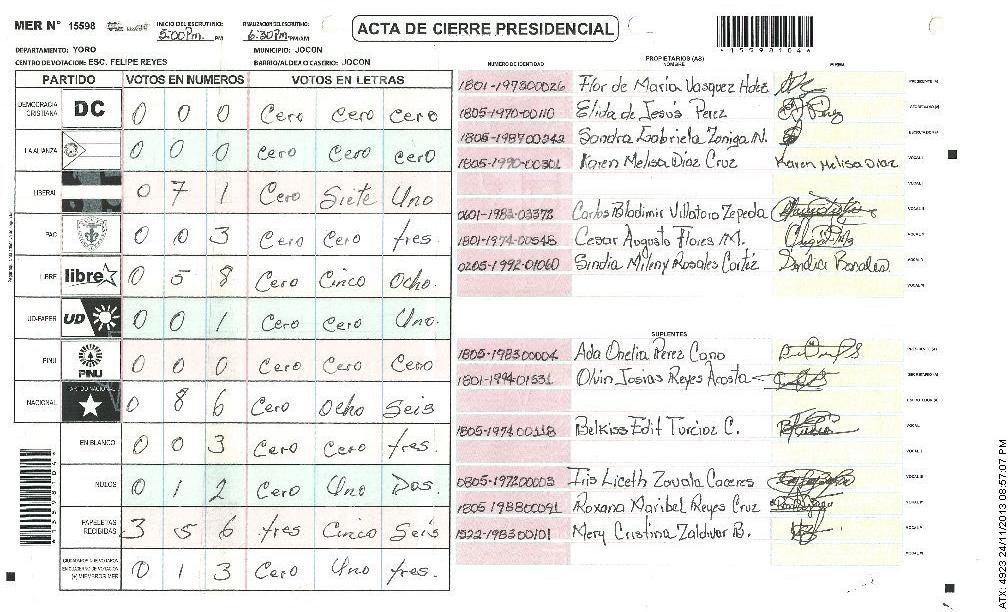 MER N° 15598 INICIO DEL ESCRUTINIO: 5:00 Pm. PM FINALIZACION DEL ESCRUTINIO: 6:30 Pm. PM/AM ACTA DE CIERRE PRESIDENCIAL
DEPARTAMENTO: YORO MUNICIPIO: JOCON
CENTRO DE VOTACION: ESC. FELIPE REYES BARRIO/ALDEA O CASERIO: JOCON
PARTIDO VOTOS EN NUMEROS VOTOS EN LETRAS
DEMOCRACIA CRISTIANA DC 0 0 0 Cero Cero Cero
LA ALIANZA 0 0 0 Cero Cero Cero
LIBERAL 0 7 1 Cero Siete Uno
PAC 0 0 3 Cero Cero tres.
LIBRE libre 0 5 8 Cero Cinco Ocho.
UD-FAPER UD 0 0 1 Cero Cero Uno.
PINU PINU 0 0 0 Cero Cero Cero
NACIONAL 0 8 6 Cero Ocho Seis
EN BLANCO 0 0 3 Cero Cero tres.
NULOS 0 1 2 Cero Uno Dos.
PAPELETAS RECIBIDAS 3 5 6 tres Cinco Seis
0 1 3 Cero Uno tres.
PROPIETARIOS (AS)
NUMERO DE IDENTIDAD NOMBRE FIRMA
1801-197800026 Flor de Maria Vasquez Hdez
1805-1970-00110 Elida de Jesús Perez
1805-198700342 Sandra Gabriela Zoniga N.
1805-1990-00301 Karen Melisa Diaz Cruz Karen Melisa Diaz
0601-1983-03378 Carlos Bladimir Villatoro Zepeda
1801-1974-00548 Cesar Augusto Flores M.
0205-1992-01060 Sindia Mileny Rosales Cortéz
SUPLENTES
1805-198300004 Ada Onelia Perez Cano
1801-1994-01531 Olvin Josias Reyes Acosta
1805-1974-00118 Belkiss Edit Turcioz C.
0805-197200003 Iris Liceth Zavala Caceres
1805 198800091 Roxana Maribel Reyes Cruz
1522-198300101 Mery Cristina Zaldivar B.
ATX: 4923 24/11/2013 08:57:07 PM